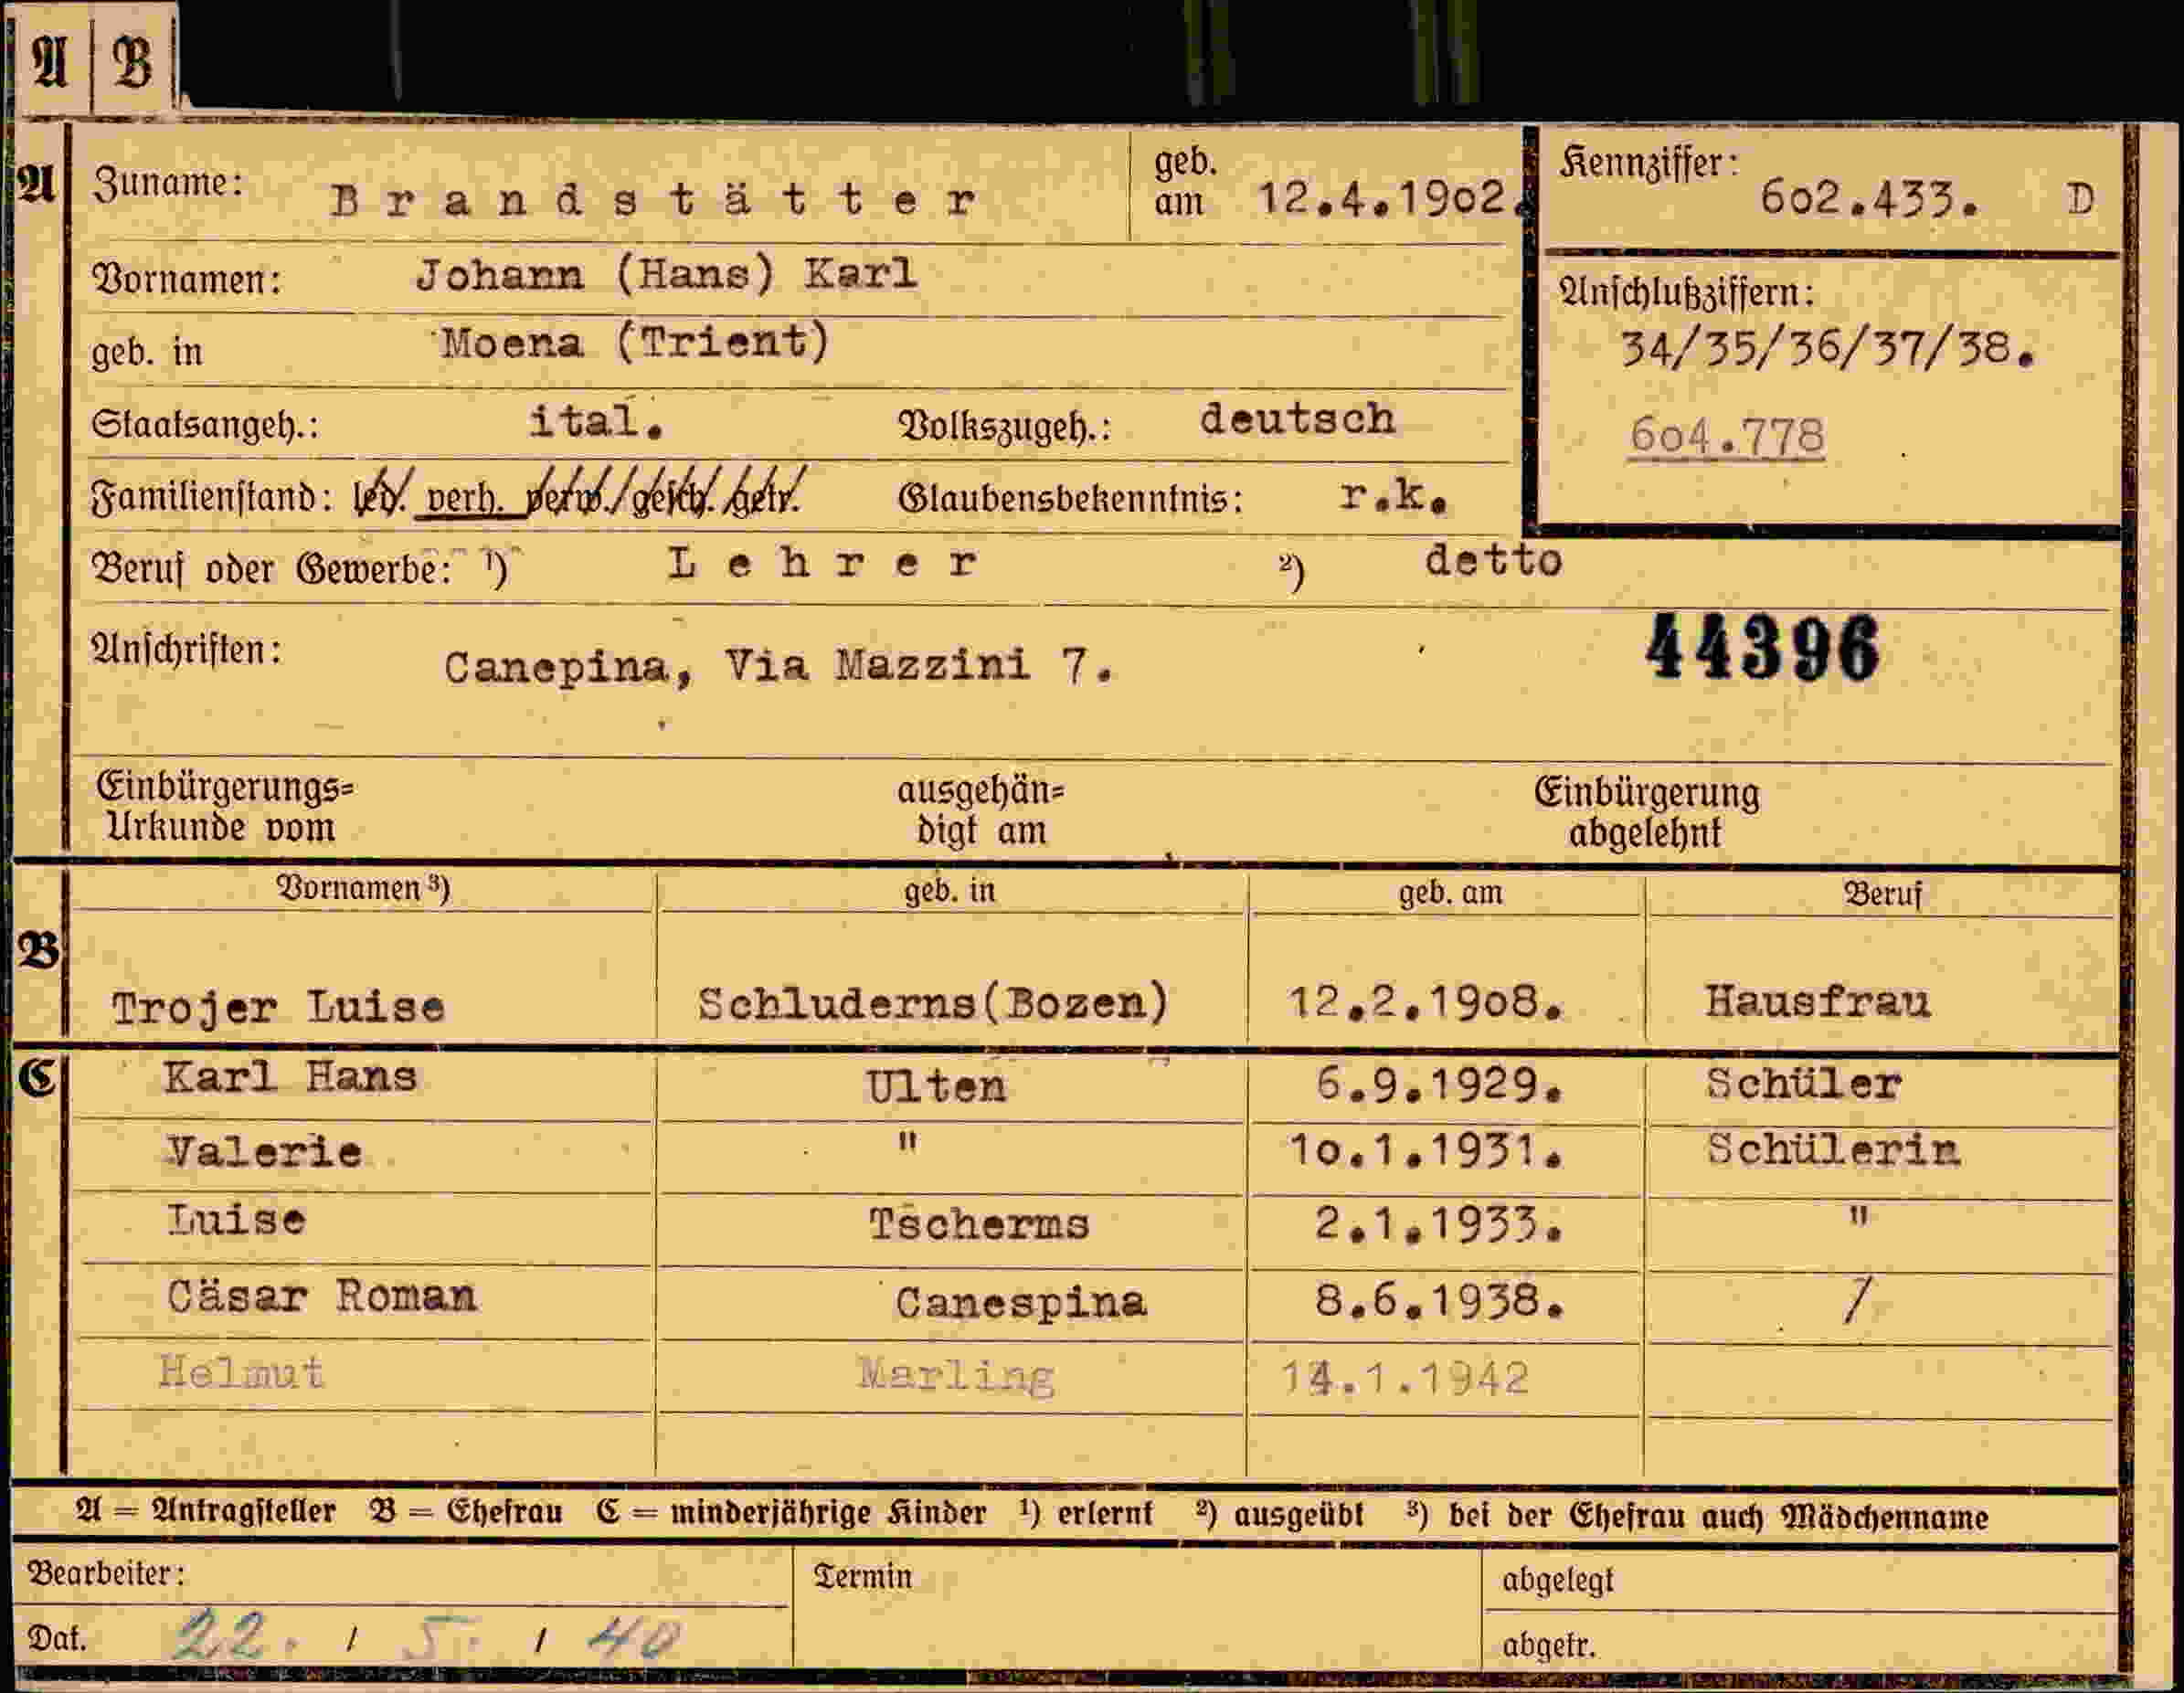 A B
A Zuname: Brandstätter geb. am 12.4.1902. Kennziffer: 602.433. D
Vornamen: Johann (Hans) Karl
Anschlußziffern:
geb. in Moena (Trient) 34/35/36/37/38.
Staatsangeh.: ital. Volkszugeh.: deutsch 604.778
Familienstand: led. verh. verw. gesch. getr. Glaubensbekenntnis: r.k.
Beruf oder Gewerbe: 1) Lehrer 2) detto
Anschriften: Canepina, Via Mazzini 7. 44396
Einbürgerungs= ausgehän= Einbürgerung
Urkunde vom digt am abgelehnt
Vornamen 3) geb. in geb. am Beruf
B
Trojer Luise Schluderns(Bozen) 12.2.1908. Hausfrau
C Karl Hans Ulten 6.9.1929. Schüler
Valerie " 10.1.1931. Schülerin
Luise Tscherms 2.1.1933. "
Cäsar Roman Canespina 8.6.1938. /
Helmut Marling 14.1.1942
A = Antragsteller B = Ehefrau C = minderjährige Kinder 1) erlernt 2) ausgeübt 3) bei der Ehefrau auch Mädchenname
Bearbeiter: Termin abgelegt
Dat. 22. / 5. / 40 abgetr.